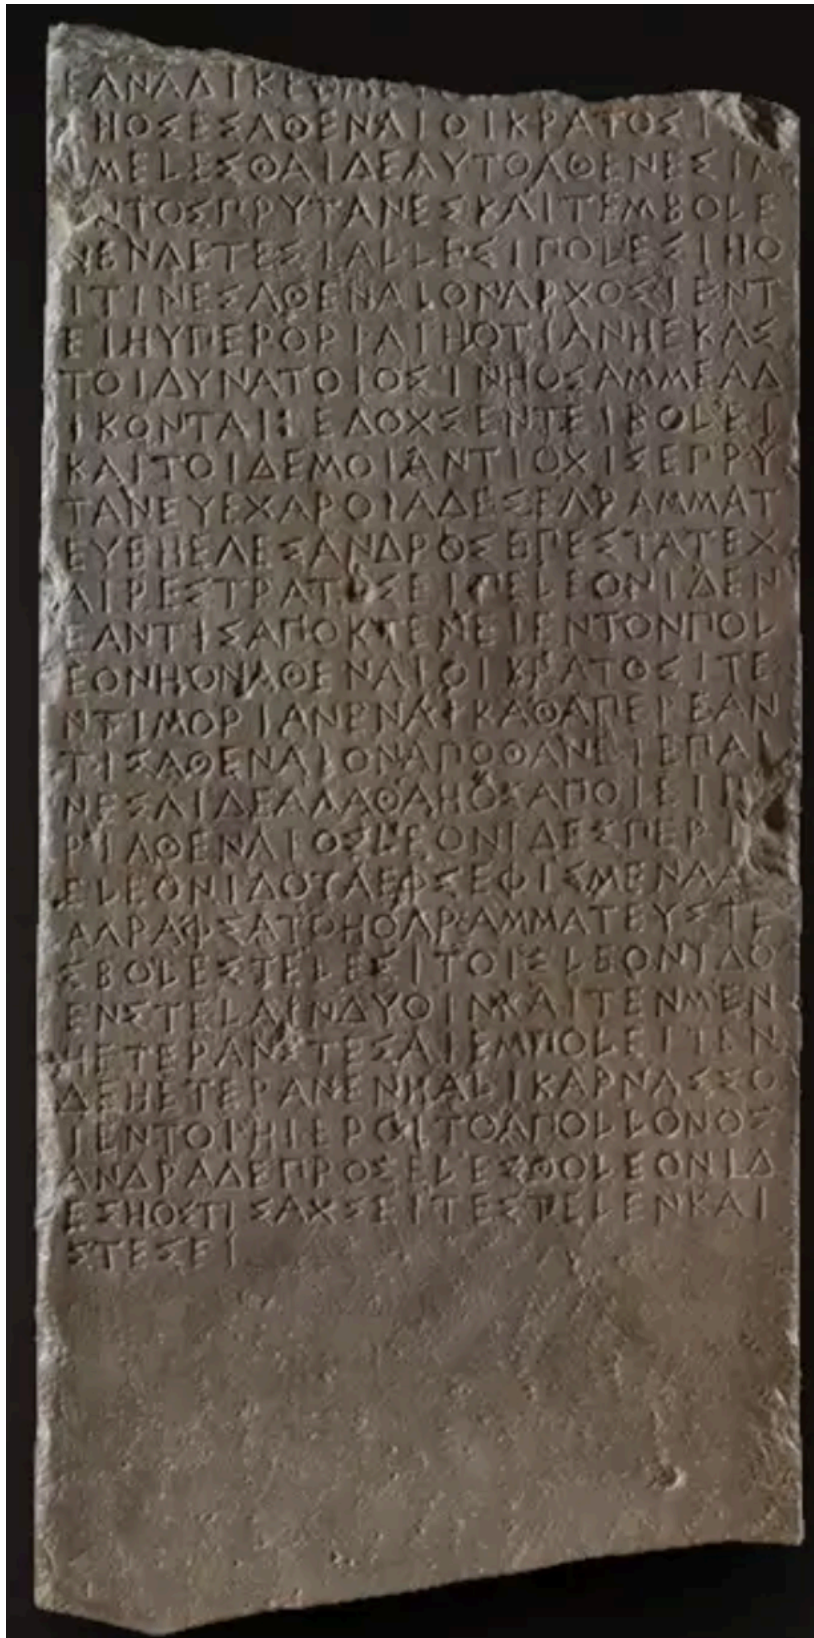 ΕΑΝΑΔΙΚΕ
ΗΟΣΕΣΑΘΕΝΑΙΟΙΚΡΑΤΟΣΙ
ΜΕΛΕΣΘΑΙΔΕΑΥΤΟΑΘΕΝΕΣΙ
ΝΤΟΣΠΡΥΤΑΝΕΣΚΑΙΤΕΜΒΟΛΕ
ΝΕΝΔΕΤΕΣΙΑΛΛΕΣΙΠΟΛΕΣΙΗΟ
ΙΤΙΝΕΣΑΘΕΝΑΙΟΝΑΡΧΟΣΙΕΝΤ
ΕΙΗΥΠΕΡΟΡΙΑΙΗΟΤΙΑΝΗΕΚΑΣ
ΤΟΙΔΥΝΑΤΟΙΟΣΙΝΗΟΣΑΜΜΕΑΔ
ΙΚΟΝΤΑΙ⁝ΕΔΟΧΣΕΝΤΕΙΒΟΛΕΙ
ΚΑΙΤΟΙΔΕΜΟΙΑΝΤΙΟΧΙΣΕΠΡΥ
ΤΑΝΕΥΕΧΑΡΟΙΑΔΕΣΕΓΡΑΜΜΑΤ
ΕΥΕΗΕΓΕΣΑΝΔΡΟΣΕΠΕΣΤΑΤΕΧ
ΑΙΡΕΣΤΡΑΤΟΣΕΙΠΕΛΕΟΝΙΔΕΝ
ΕΑΝΤΙΣΑΠΟΚΤΕΝΕΙΕΝΤΟΝΠΟΛ
ΕΟΝΗΟΝΑΘΕΝΑΙΟΙΚΡΑΤΟΣΙΤΕ
ΝΤΙΜΟΡΙΑΝΕΝΑΙΚΑΘΑΠΕΡΕΑΝ
ΤΙΣΑΘΕΝΑΙΟΝΑΠΟΘΑΝΕΙΕΠΑΙ
ΝΕΣΑΙΔΕΑΓΑΘΑΗΟΣΑΠΟΙΕΙΠ
ΡΙΑΘΕΝΑΙΟΣΛΕΟΝΙΔΕΣΠΕΡΙ
ΕΛΕΟΝΙΔΟΤΑΕΦΣΕΦΙΣΜΕΝΑΑ
ΑΓΡΑΦΣΑΤΟΗΟΓΡΑΜΜΑΤΕΥΣΤΕ
ΣΒΟΛΕΣΤΕΛΕΣΙΤΟΙΣΛΕΟΝΙΔΟ
ΕΝΣΤΕΛΑΙΝΔΥΟΙΝΚΑΙΤΕΝΜΕΝ
ΗΕΤΕΡΑΝΣΤΕΣΑΙΕΜΠΟΛΕΙΤΕΝ
ΔΕΗΕΤΕΡΑΝΕΝΗΑΛΙΚΑΡΝΑΣΣΟ
ΙΕΝΤΟΙΗΙΕΡΟΙΤΟΑΠΟΛΛΟΝΟΣ
ΑΝΔΡΑΔΕΠΡΟΣΕΛΕΣΘΟΛΕΟΝΙΔ
ΕΣΗΟΣΤΙΣΑΧΣΕΙΤΕΣΤΕΛΕΝΚΑΙ
ΣΤΕΣΕΙ